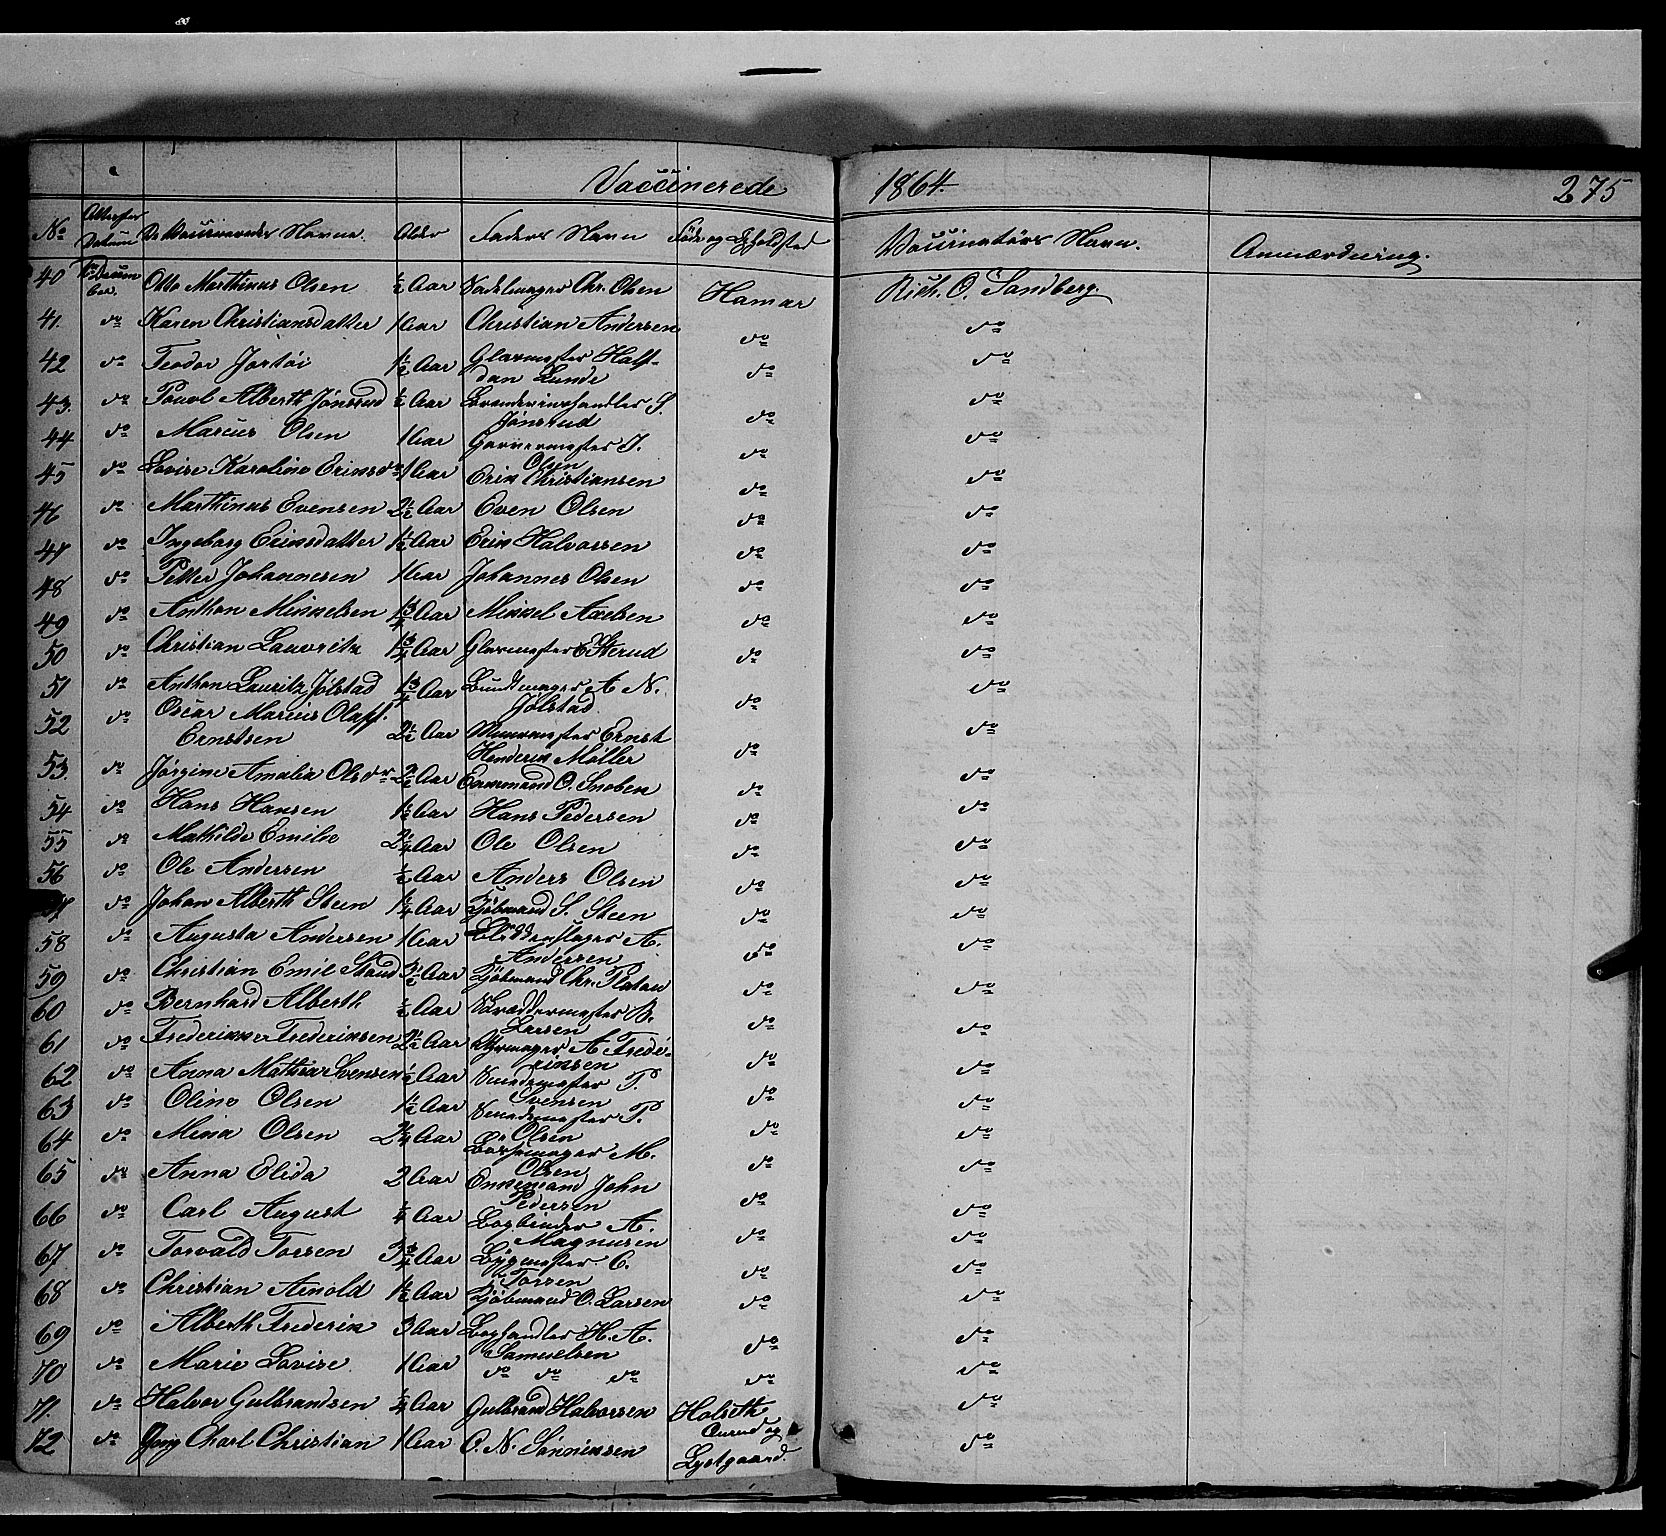 Vaccinerede 1864. 275
No Attestens Datum De Vaccineredes Navne. Alder Faders Navn Føde og Opholdsted Vaccinatørs Navn. Anmærkning.
40 December. Otto Marthinus Olsen ½ Aar Sadelmager Chr. Olsen Hamar Rich. O. Sandberg.
41. do Karen Christiansdatter 1 Aar Christian Andersen do do
42 do Teodor 1½ Aar Glarmester Halfdan Lunde do do
43. do Pouel Alberth Jönsrud ½ Aar Brændeviinshandler S. Jönsrud do do
44 do Marcus Olsen 1 Aar Garvermester J. Olsen do do
45 do Lovise Karoline Eriksdr 1 Aar Erik Christiansen do do
46 do Marthinus Evensen 2½ Aar Even Olsen do do
47 do Ingeborg Eriksdatter 1½ Aar Erik Halvorsen do do
48 do Petter Johannesen 1 Aar Johannes Olsen do do
49 do Anthon Mikkelsen 1¾ Aar Mikkel Axelsen do do
50 do Christian Lauvritz 1¾ Aar Glarmester do do
51 do Anthon Lauritz Jölstad 1¾ Aar Buntmager A N. Jölstad. do do
52 do Oscar Marcius Olaff. Ernstsen 2½ Aar Muurmester Ernst Henderik Möller do do
53. do Jørgine Amalia Olsdr 2½ Aar O. Snoben do do
54 do Hans Hansen 1½ Aar Hans Pedersen do do
55 do Mathilde Emilie 2¼ Aar Ole Olsen do do
56 do Ole Andersen ½ Aar Anders Olsen do do
57 do Johan Alberth Steen 1¼ Aar Kjöbmand S. Steen do do
58 do Augusta Andersen 1 Aar A. Andersen do do
59 do Christian Emil 3½ Aar Kjöbmand Chr. Platou do do
60 do Bernhard Alberth ½ Aar Skræddermester B. Larsen do do
61 do Frederikke Frederiksen 2½ Aar Uhrmager A Frederiksen do do
62 do Anna Mathea Svensen ½ Aar Smedemester P. Svensen do do
63 do Oline Olsen 1½ Aar Smedemester P. Olsen do do
64 do Mina Olsen 2¼ Aar Børsemager M. Olsen do do
65 do Anna Elida 2 Aar Enkemand John Pedersen do do
66 do Carl August ¼ Aar Bogbinder A. Magnusen do do
67. do Torvald Torsen 3¾ Aar Bygmester C. Torsen do do
68 do Christian Arnold 1½ Aar Kjöbmand O. Larsen do do
69 do Alberth Frederik 3 Aar Boghandler H. A. Samuelsen do do
70 do Marie Lovise 1 Aar do do do do do
71. do Halvor Gulbrandsen ¾ Aar Gulbrand Halvorsen Holseth do
72 do Carl Christian 1 Aar O. N. Sönniksen og Lystgaard. do